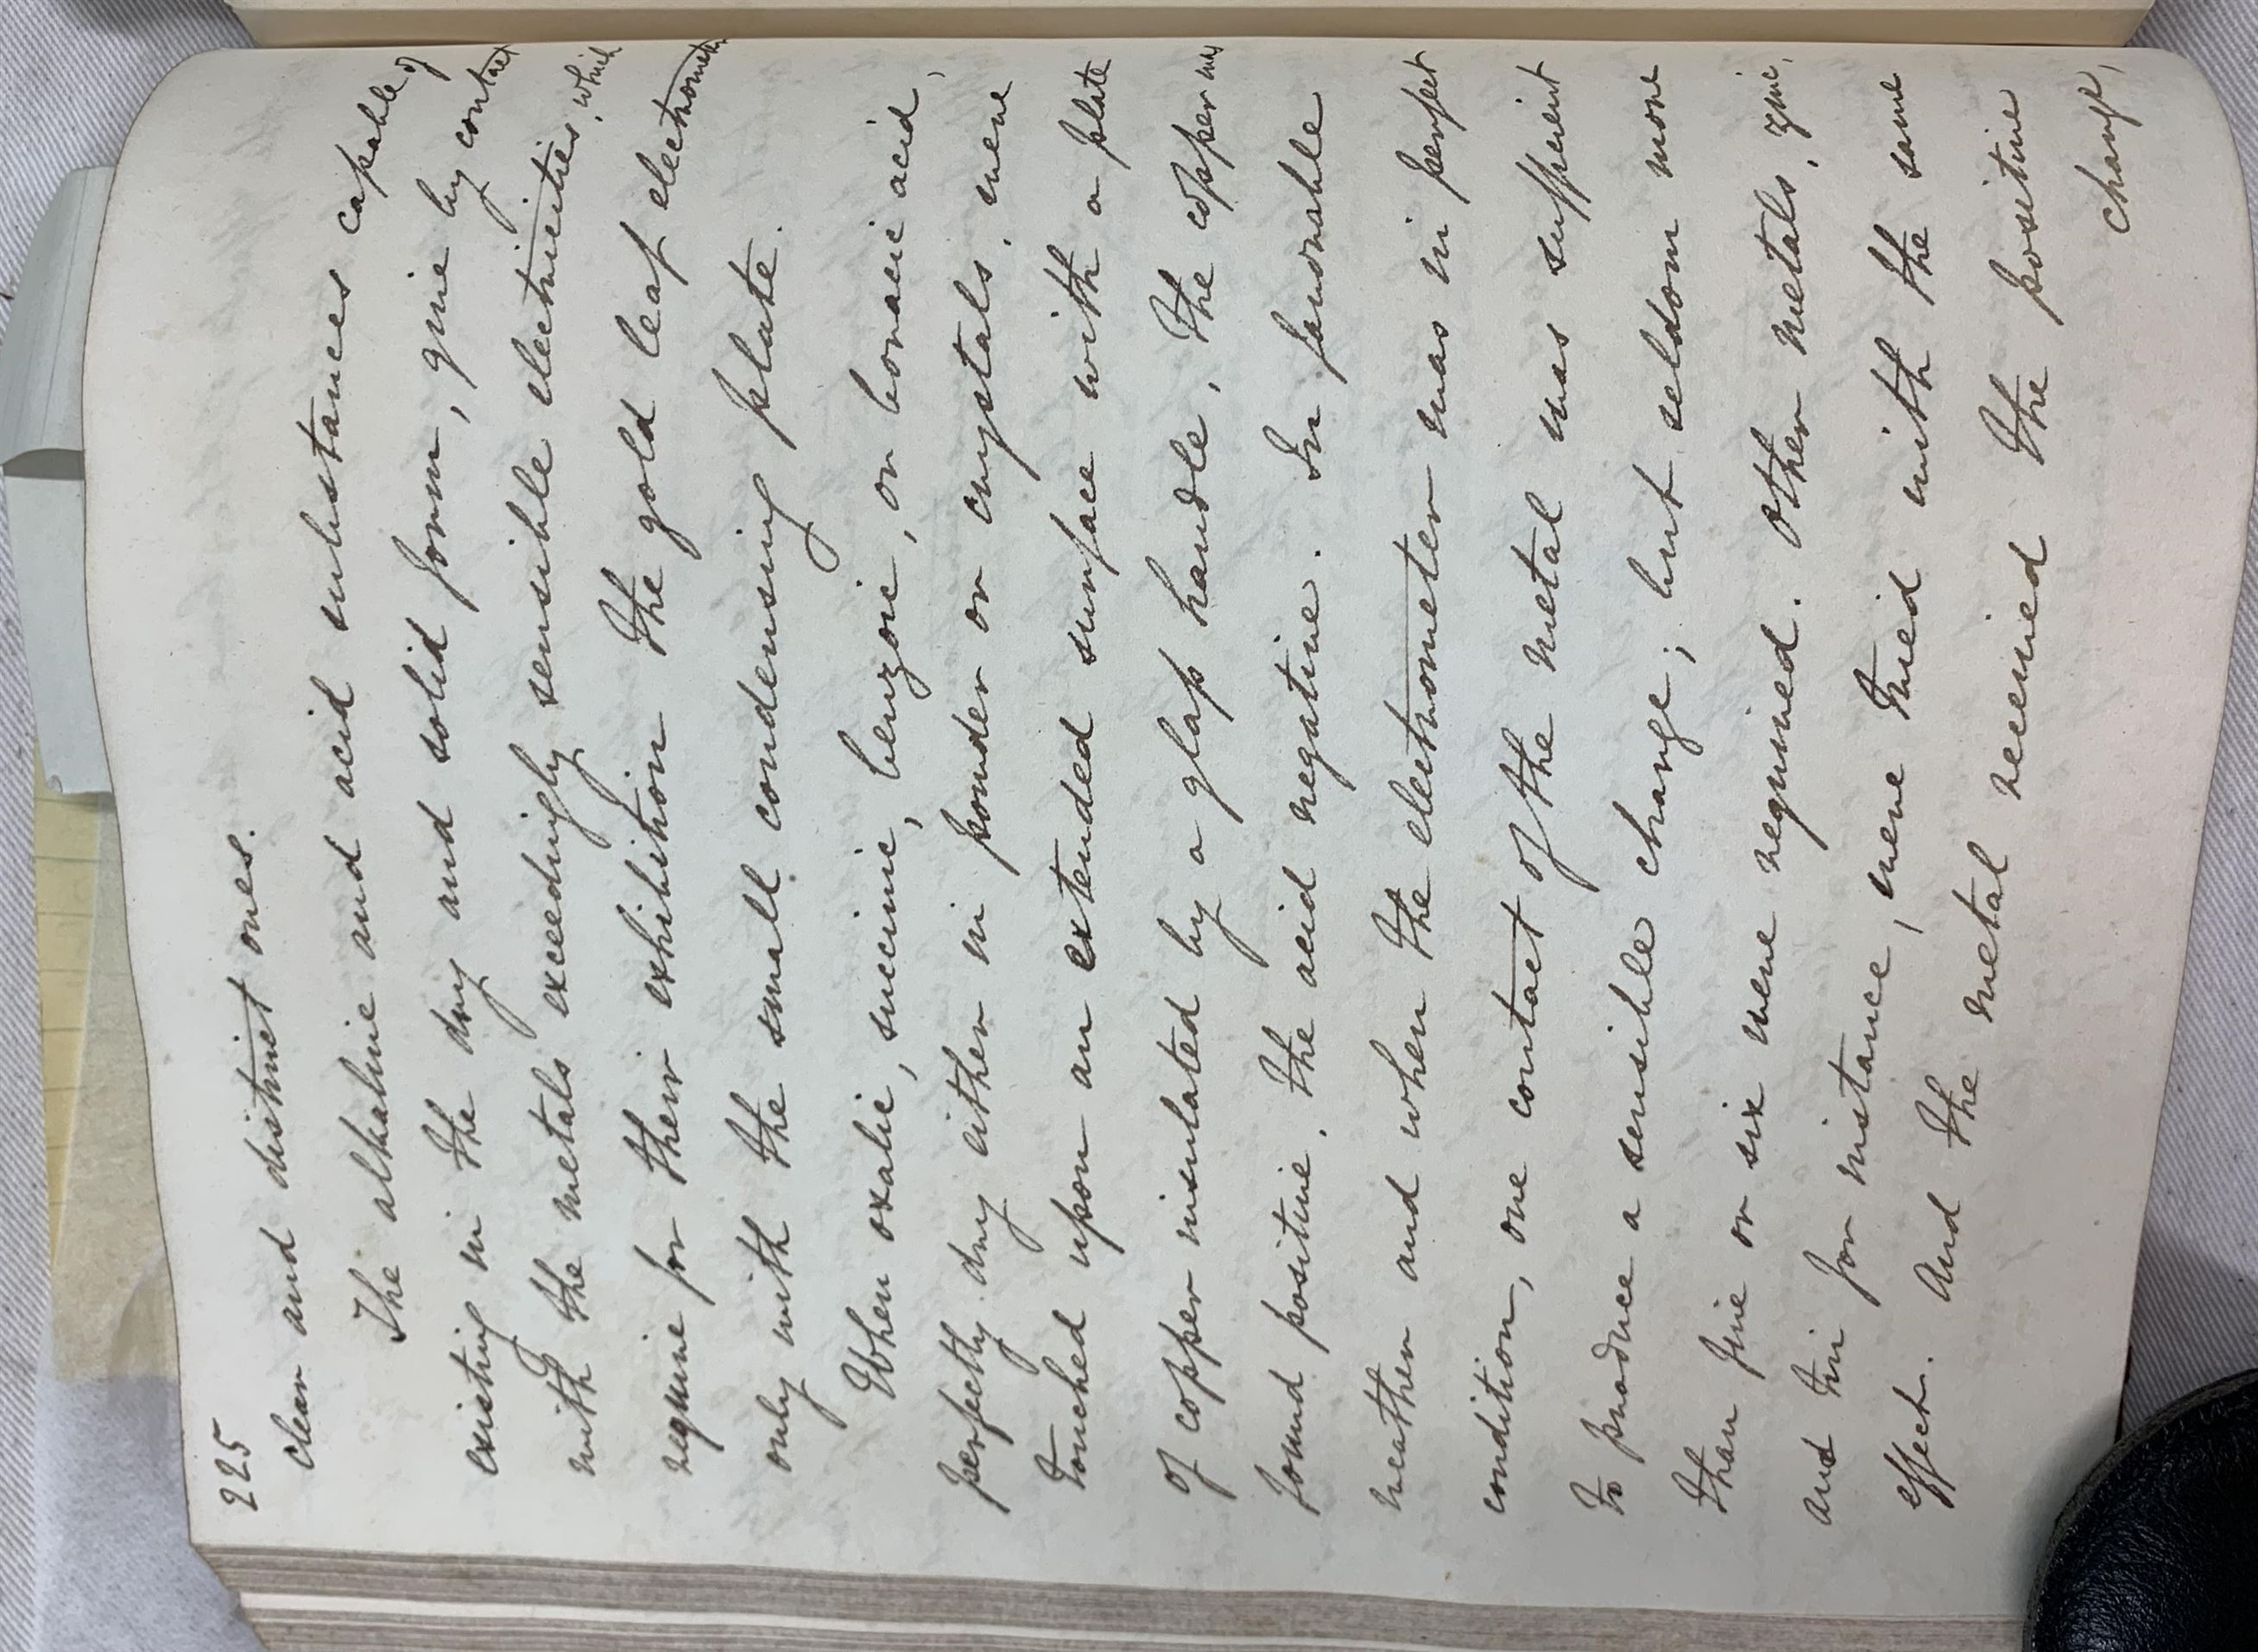 225
clear and distinct ones.
The alkaline and acid substances capable of
existing in the dry and solid form, give by contact
with the metals exceedingly sensible electricities, which
require for their exhibition the gold leaf electrometer
only with the small condensing plate.
When oxalic, succinic, benzoic, or boracic acid,
perfectly dry either in powder or crystals, were
touched upon an extended surface with a plate
of copper insulated by a glass handle, the copper was
found positive, the acid negative. In favorable
weather and when the electrometer was in perfect
condition, one contact of the metal was sufficient
to produce a sensible change; but seldom more
than five or six were required. Other metals, zinc,
and tin for instance, were tried with the same
effect. And the metal received the positive
charge,